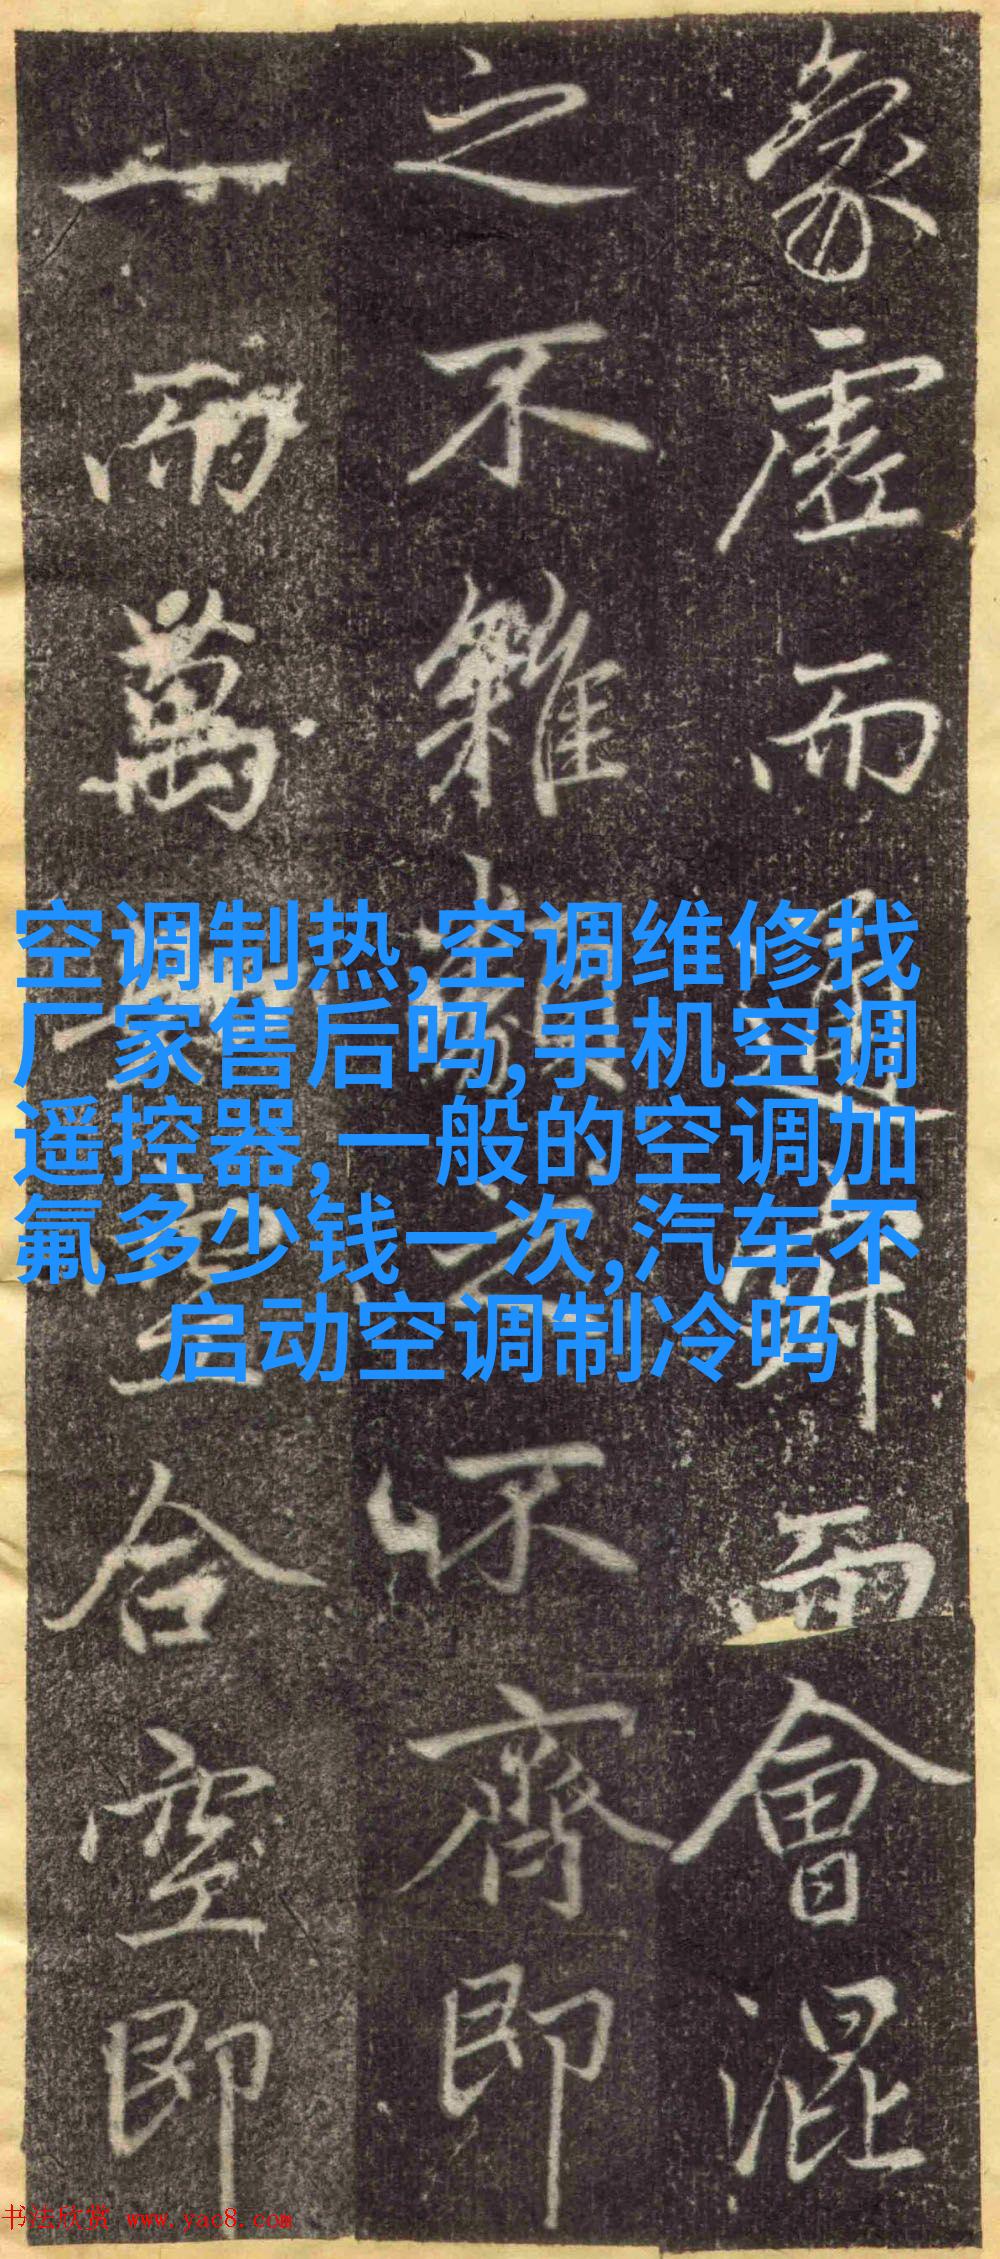 象虛而而會混
之不雜之不齊即
一而萬合空即
空调制热,空调维修找
厂家售后吗,手机空调
遥控器,一般的空调加
氟多少钱一次,汽车不
启动空调制冷吗
书法欣赏 www.yac8.com